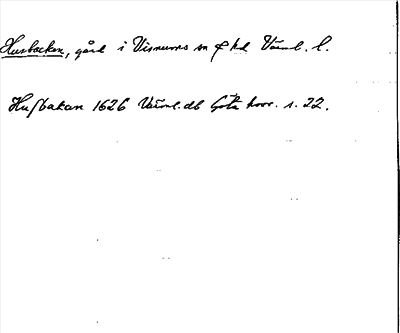 Husbacken, gård i Visnums sn o hd Värml. l.
Husbakan 1626 Värml. db Göta hovr. s. 22.